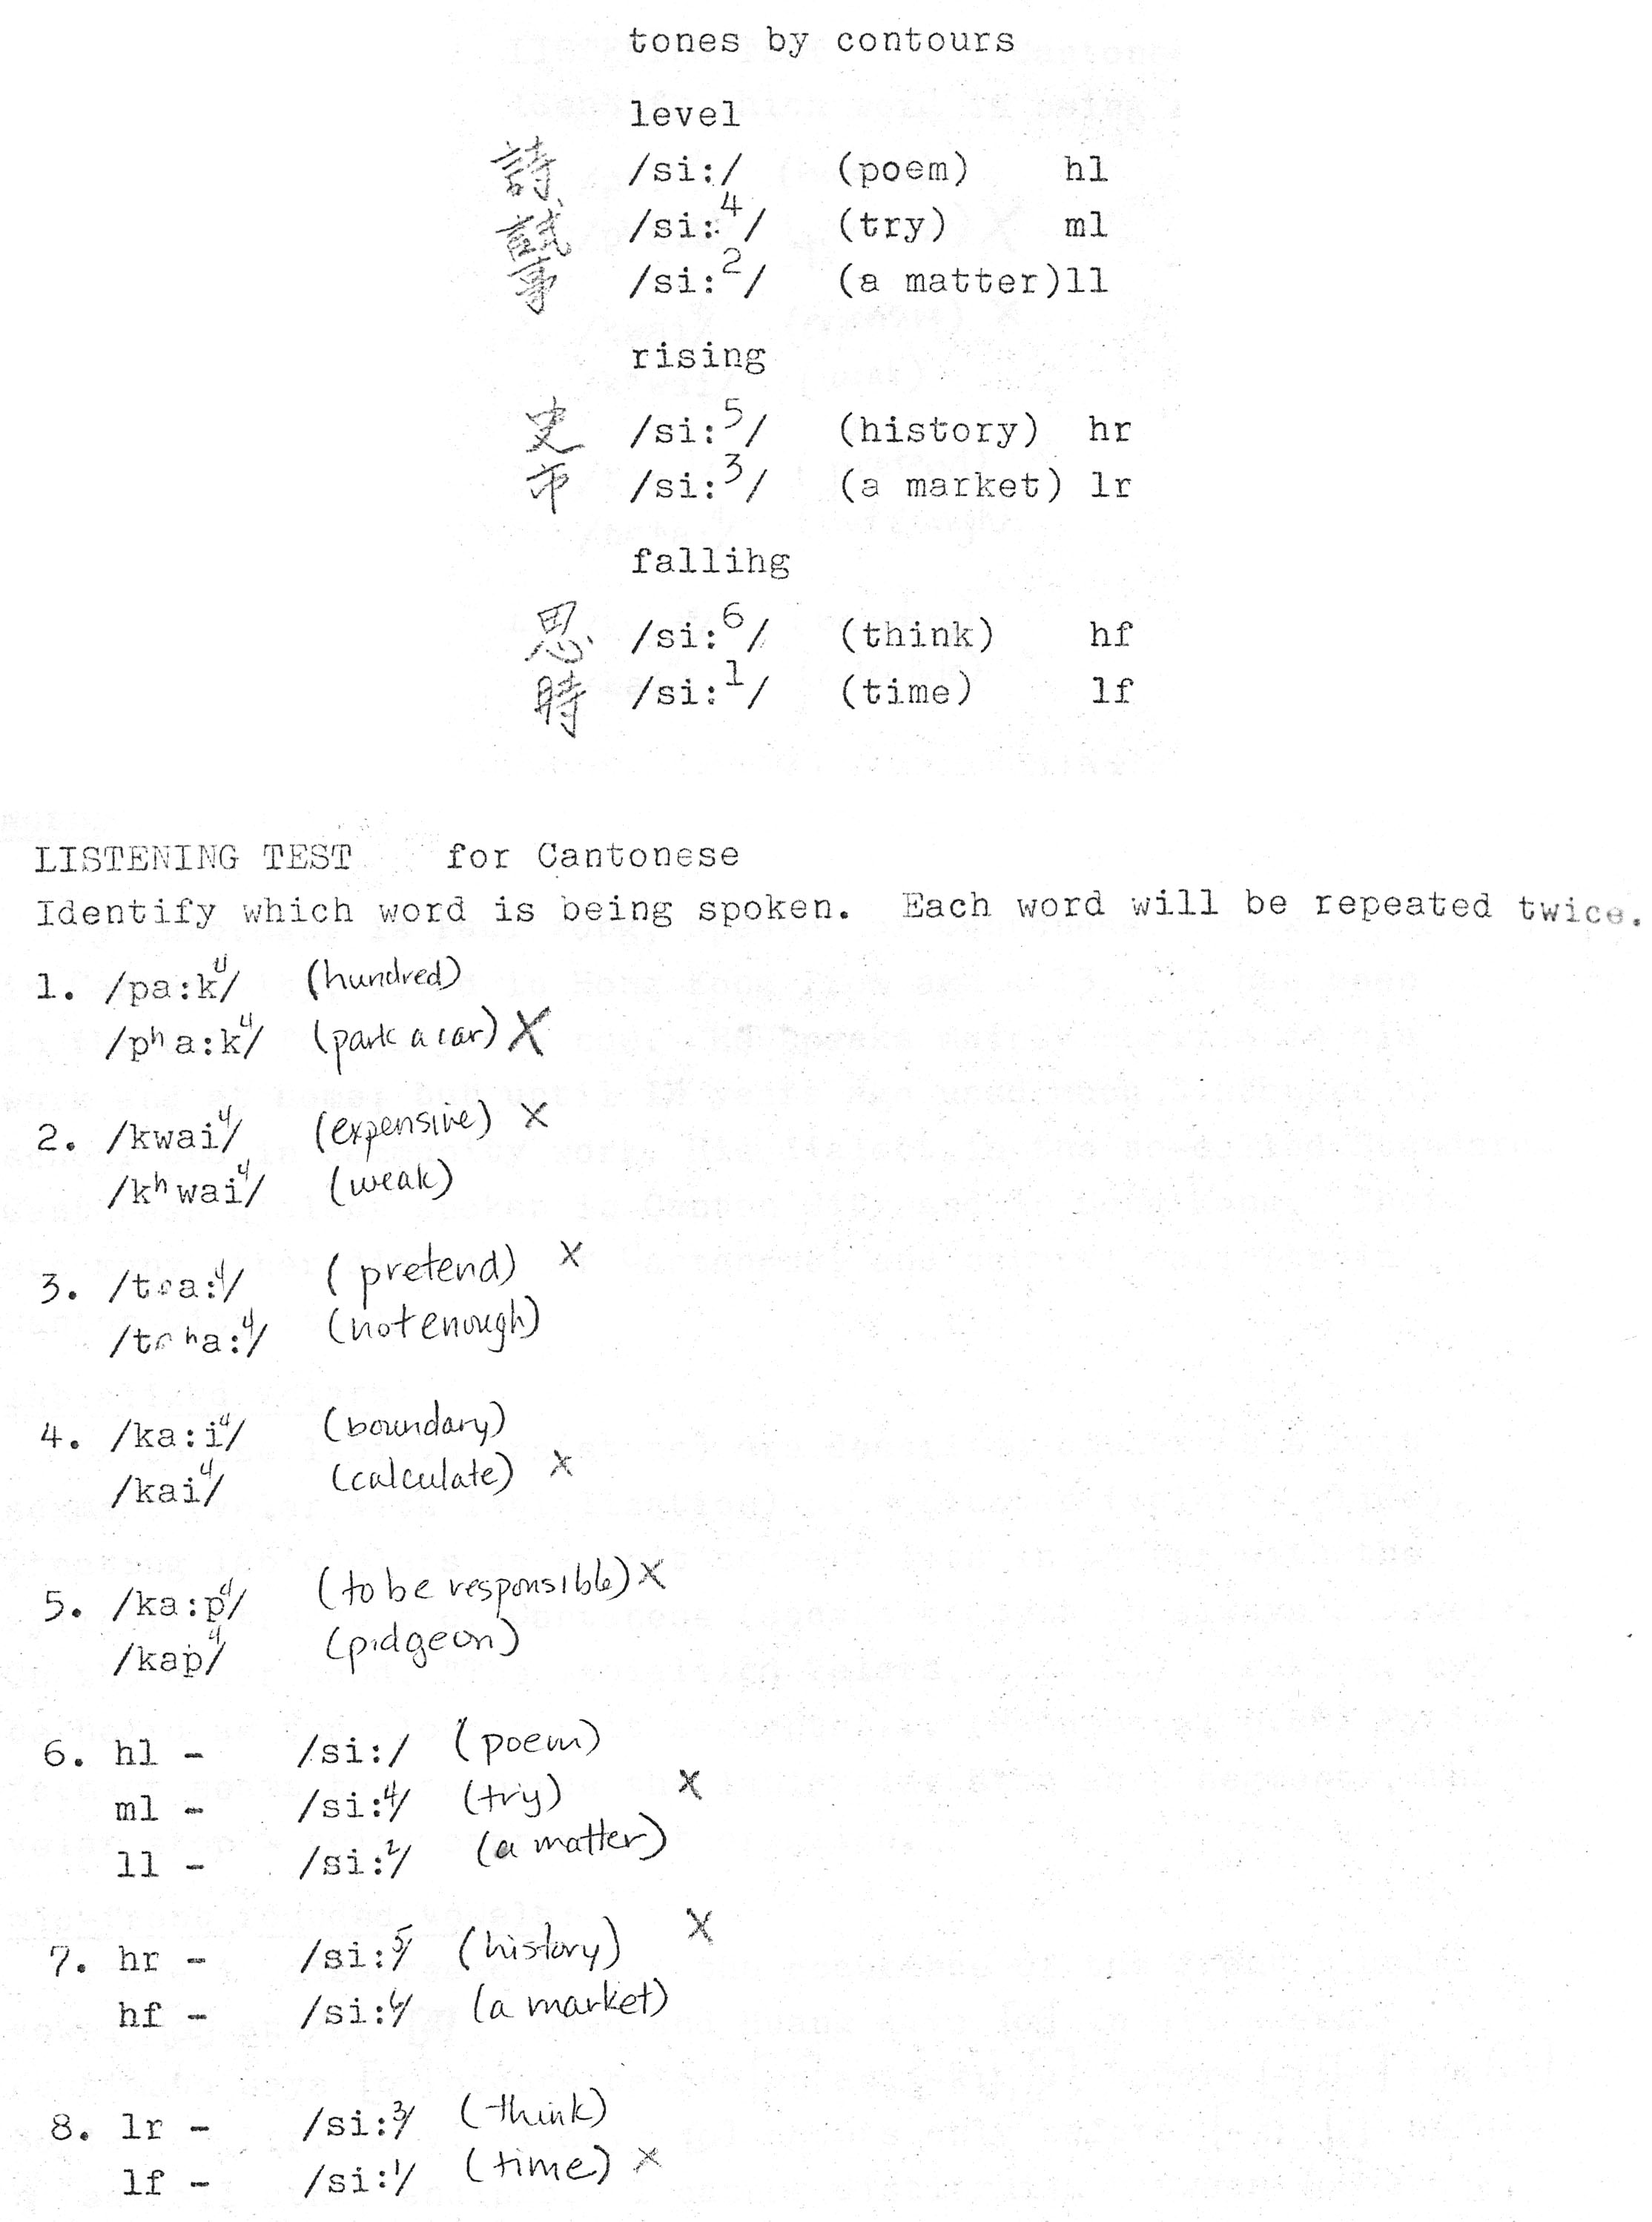 tones by contours
level
詩 /si:/ (poem) hl
試 /si:⁴/ (try) ml
事 /si:²/ (a matter)ll
rising
史 /si:⁵/ (history) hr
市 /si:³/ (a market) lr
fallihg
思 /si:⁶/ (think) hf
時 /si:¹/ (time) lf
LISTENING TEST for Cantonese
Identify which word is being spoken. Each word will be repeated twice.
1. /pa:k⁴/ (hundred)
/pʰa:k⁴/ (park a car) X
2. /kwai⁴/ (expensive) X
/kʰwai⁴/ (weak)
3. /tsa:⁴/ (pretend) X
/tsʰa:⁴/ (not enough)
4. /ka:i⁴/ (boundary)
/kai⁴/ (calculate) X
5. /ka:p⁴/ (to be responsible) X
/kap⁴/ (pidgeon)
6. hl - /si:/ (poem)
ml - /si:⁴/ (try) X
ll - /si:²/ (a matter)
7. hr - /si:⁵/ (history) X
hf - /si:⁶/ (a market)
8. lr - /si:³/ (think)
lf - /si:¹/ (time) X